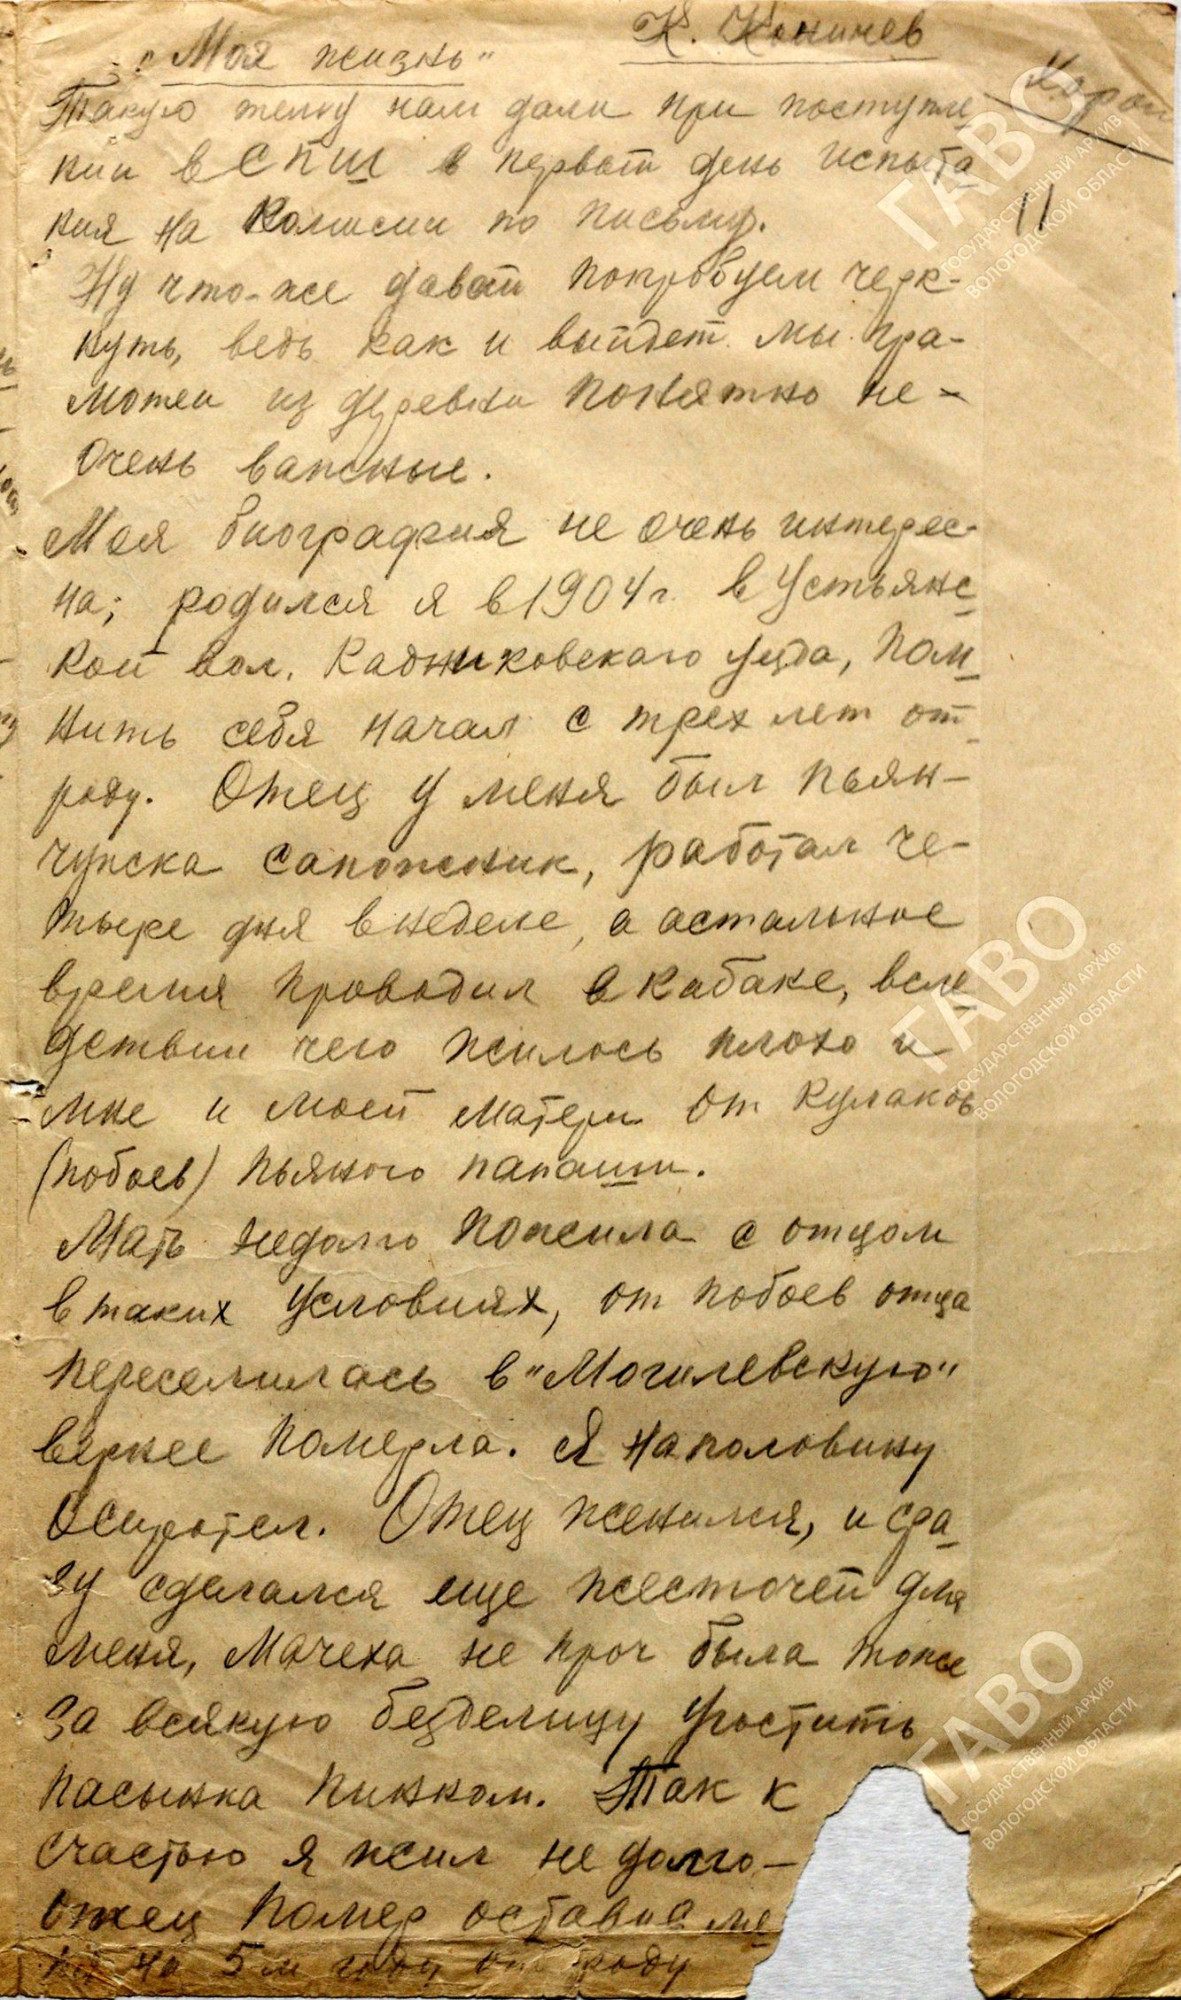 К. Коничев
"Моя жизнь"
Такую тему нам дали при поступле
нии в СПШ в первый день испыта
ния на комисии по письму.
11
Ну что-же давай попробуем черк-
нуть, ведь как и выйдет мы гра-
мотеи из деревни понятно не-
очень важные.
Моя биография не очень интерес-
на; родился я в 1904 г. в Устьянс
кой вол. Кадниковского уезда, пом
нить себя начал с трех лет от
роду. Отец у меня был пьян-
чужка сапожник, работал че-
тыре дня в неделе, а астальное
время проводил в кабаке, всле
дствии чего жилось плохо и
мне и моей матери от кулаков
(побоев) пьяного папаши.
Мать недолго пожила с отцом
в таких условиях, от побоев отца
переселилась в "Могилевскую"
вернее померла. Я на половину
осиротел. Отец женился, и сра
зу сделался еще жесточей для
меня, Мачеха не проч была тоже
за всякую безделицу угостить
пасынка пинком. Так к
счастью я жил не долго-
отец помер оставив ме
ня на 5м году от роду
ГАВО
ГОСУДАРСТВЕННЫЙ АРХИВ
ВОЛОГОДСКОЙ ОБЛАСТИ
ГАВО
ГОСУДАРСТВЕННЫЙ АРХИВ
ВОЛОГОДСКОЙ ОБЛАСТИ
ГАВО
ГОСУДАРСТВЕННЫЙ АРХИВ
ВОЛОГОДСКОЙ ОБЛАСТИ